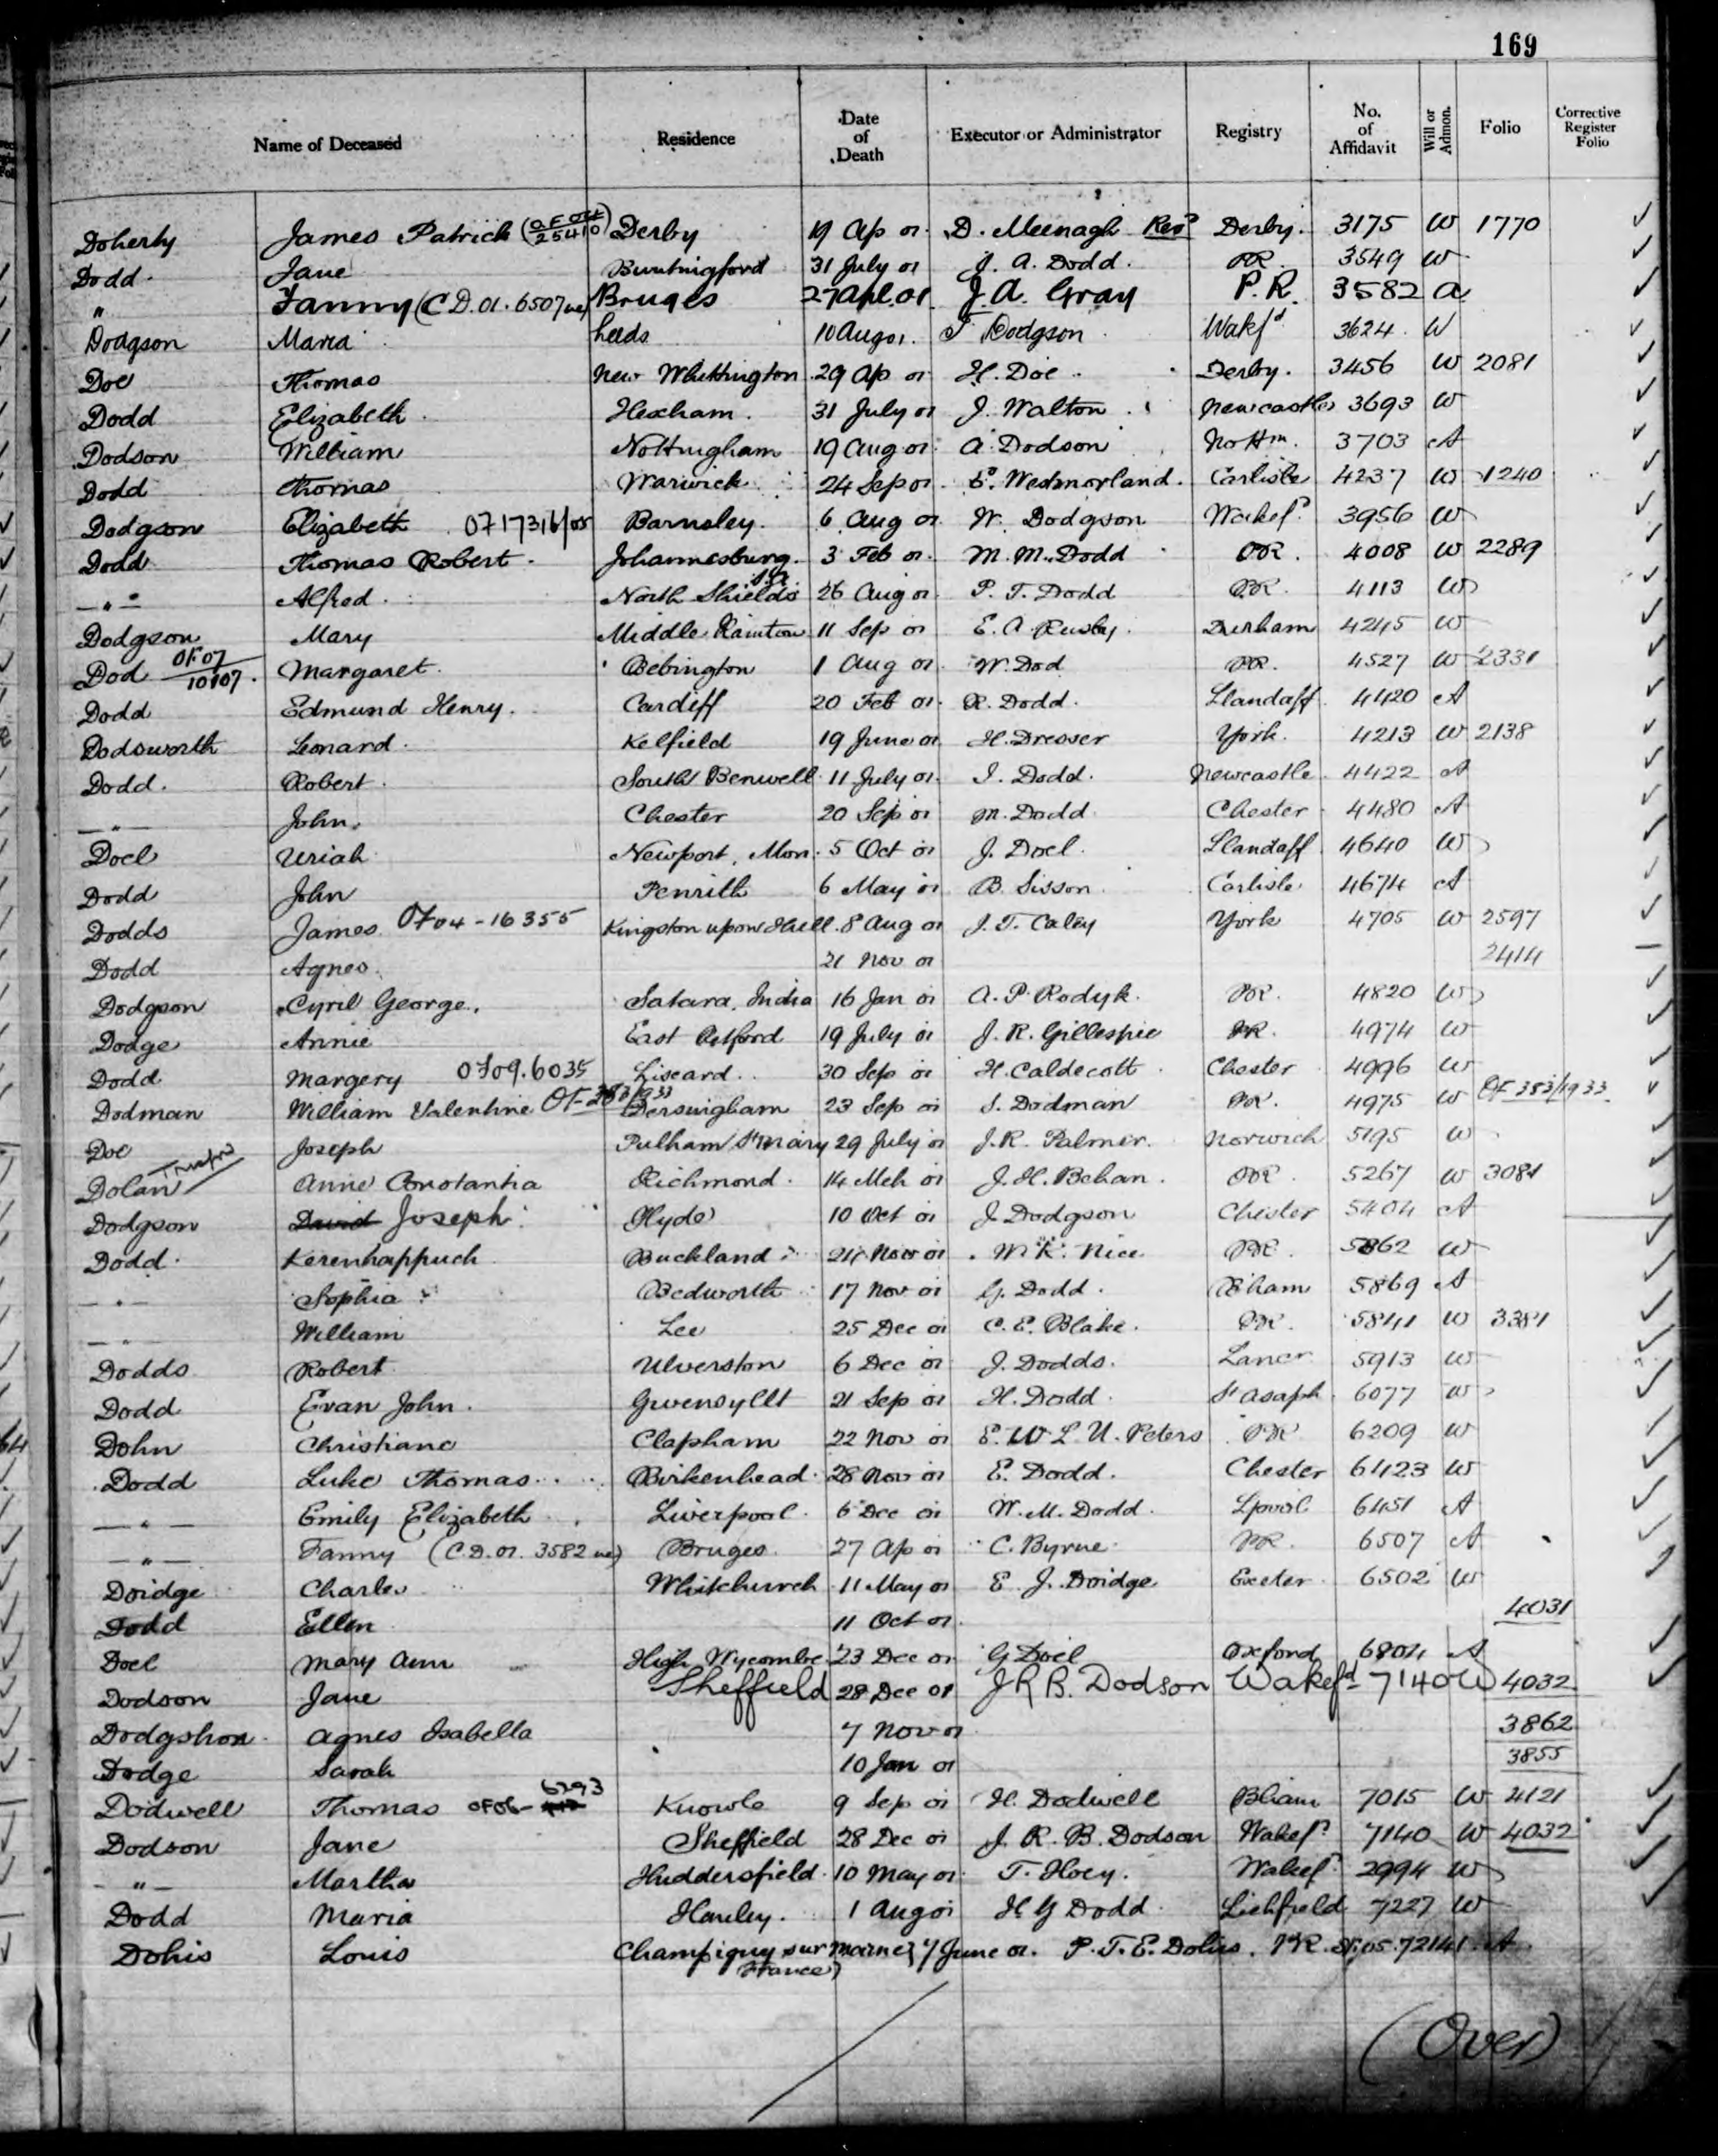 169
Name of Deceased Residence Date of Death Executor or Administrator Registry No. of Affidavit Will or Admon. Folio Corrective Register Folio
Doherty James Patrick Derby 19 Ap 01 D. Meenagh Revd Derby. 3175 W 1770
Dodd Jane Buntingford 31 July 01 J. A. Dodd. PR 3549 W
" Fanny (C.D. 01. 6507 Bruges 27 Apl. 01 J. A. Gray P.R. 3582 A
Dodgson Maria Leeds 10 Aug 01. Dodgson Wakfd 3624 W
Doe Thomas New Whittington 29 Ap 01 H. Doe Derby. 3456 W 2081
Dodd Elizabeth Hexham. 31 July 01 J. Walton Newcastle 3693 W
Dodson William Nottingham 19 Aug 01 A. Dodson Nottm. 3703 A
Dodd Thomas Warwick 24 Sep 01 E. Westmorland. Carlisle 4237 W 1240
Dodgson Elizabeth 0717316/05 Barnsley. 6 Aug 01 W. Dodgson Wakefd 3956 W
Dodd Thomas Robert Johannesburg. S.A. 3 Feb 01. M. M. Dodd PR. 4008 W 2289
— " — Alfred North Shields 26 Aug 01 P. T. Dodd PR. 4113 W
Dodgson Mary Middle Rainton 11 Sep 01 E. A. Durham 4245 W
Dod OF 07 10107. Margaret. Bebington 1 Aug 01 W. Dod PR. 4527 W 2331
Dodd Edmund Henry. Cardiff 20 Feb 01. Dodd. Llandaff 4420 A
Dodsworth Leonard Kelfield 19 June 01 H. Dresser York. 4213 W 2138
Dodd. Robert South Benwell 11 July 01. I. Dodd. Newcastle 4422 A
— " — John. Chester 20 Sep 01 M. Dodd Chester 4480 A
Doel Uriah Newport, Mon. 5 Oct 01 J. Doel. Llandaff 4640 W
Dodd John Penrith 6 May 01 B. Sisson Carlisle 4674 A
Dodds James OF 04-16355 Kingston upon Hull. 8 Aug 01 J. T. Caley York 4705 W 2597
Dodd Agnes. 21 Nov 01 2414
Dodgson Cyril George. Satara, India 16 Jan 01 A. P. Rodyk. PR. 4820 W
Dodge Annie East Retford 19 July 01 J. R. Gillespie PR. 4974 W
Dodd Margery OF 09.6035 Liscard. 30 Sep 01 H. Caldecott Chester 4996 W
Dodman William Valentine Dersingham 23 Sep 01 S. Dodman PR. 4975 W OF 383/1933
Doe Joseph Pulham St Mary 29 July 01 J. R. Palmer. Norwich 5195 W
Dolan Anne Constantia Richmond. 14 Mch 01 J. H. Behan. PR. 5267 W 3081
Dodgson David Joseph Hyde 10 Oct 01 J. Dodgson Chester 5404 A
Dodd. Kerenhappuch Buckland 24 Nov 01 M. K. Nice PR. 5862 W
— " — Sophia Bedworth 17 Nov 01 G. Dodd. Bham 5869 A
— " — William Lee 25 Dec 01 C. E. Blake. PR. 5841 W 3381
Dodds Robert Ulverston 6 Dec 01 J. Dodds. Lancr 5913 W
Dodd Evan John. Gwersyllt 21 Sep 01 H. Dodd St Asaph 6077 W
Dohn Christiane Clapham 22 Nov 01 E. W. L. U. Peters PR 6209 W
Dodd Luke Thomas Birkenhead 28 Nov 01 E. Dodd. Chester 6423 W
— " — Emily Elizabeth Liverpool 6 Dec 01 W. M. Dodd. Lpool. 6451 A
— " — Fanny (C.D. 01. 3582 Bruges 27 Ap 01 C. Byrne PR. 6507 A
Doidge Charles Whitchurch 11 May 01 E. J. Doidge Exeter 6502 W
Dodd Ellen 11 Oct 01. 4031
Doel Mary Ann High Wycombe 23 Dec 01 G Doel Oxford 6804 A
Dodson Jane Sheffield 28 Dec 01 J R B. Dodson Wakefd 7140 W 4032
Dodgshon Agnes Isabella 7 Nov 01 3862
Dodge Sarah 10 Jan 01 3855
Dodwell Thomas OF 06- 6293 Knowle 9 Sep 01 H. Dodwell Bham 7015 W 4121
Dodson Jane Sheffield 28 Dec 01 J. R. B. Dodson Wakefd 7140 W 4032
— " — Martha Huddersfield 10 May 01 T. Hoey. Wakefd 2994 W
Dodd Maria Hanley. 1 Aug 01 H. G Dodd Lichfield 7227 W
Dohis Louis Champigny sur Marne France) 7 June 01. P. T. E. Dohis. PR. A
(Over)